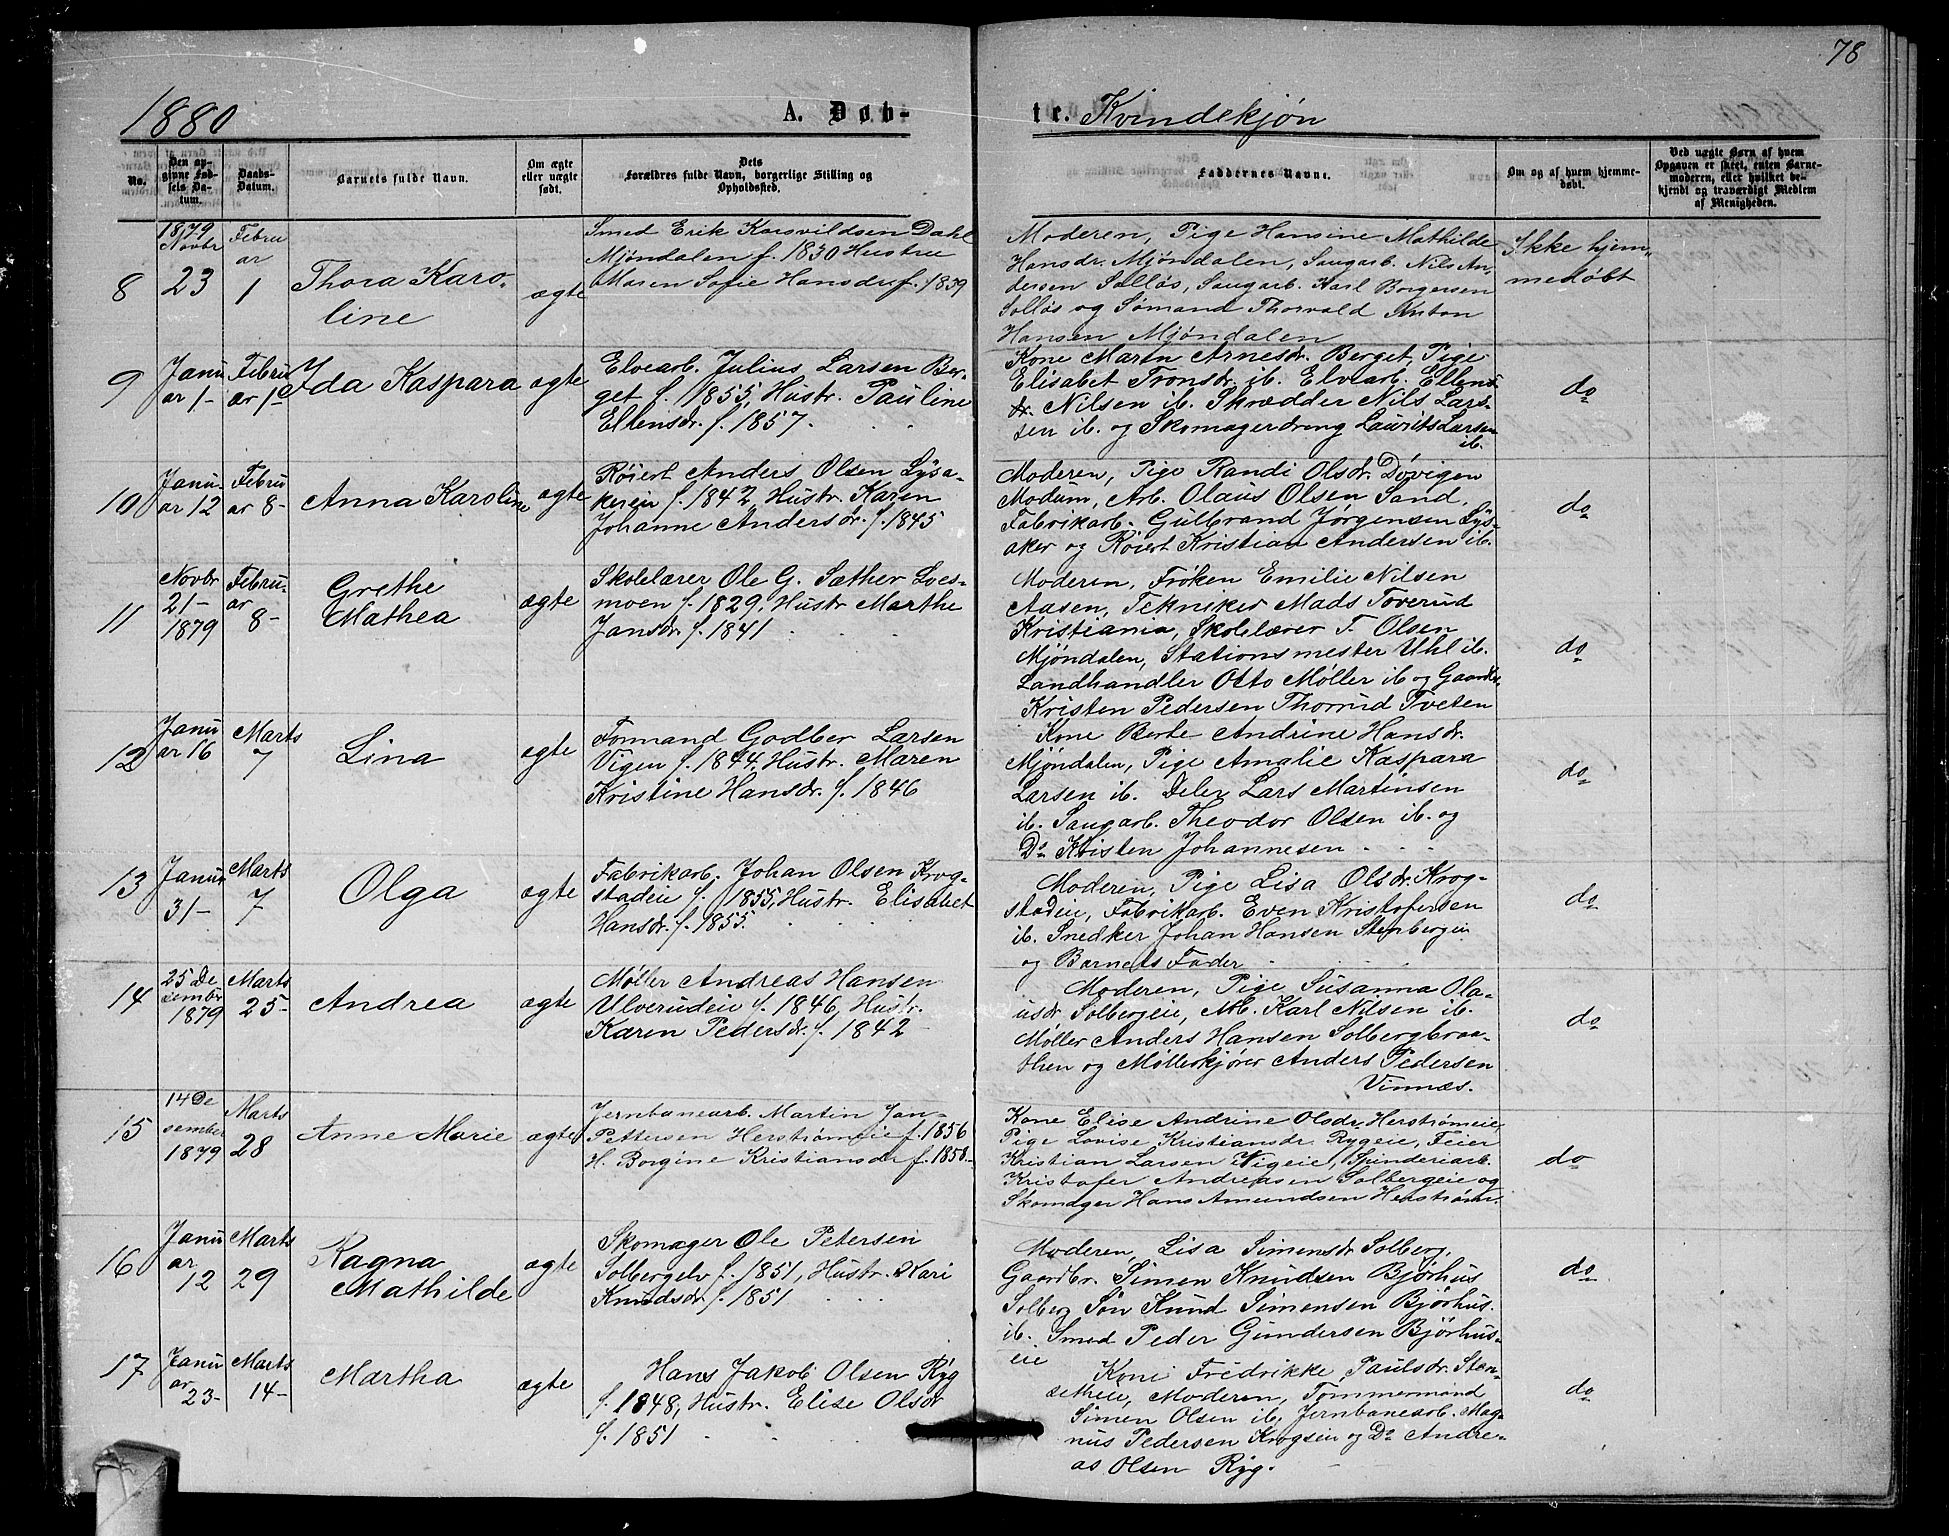 78
1880
A. Døb-
te. Kvindekjøn
No.
Den op-
givne Fød-
sels Da-
tum.
Daabs-
Datum.
Barnets fulde Navn.
Om ægte
eller uægte
født.
Dets
Forældres fulde Navn, borgerlige Stilling og
Opholdssted.
Faddernes Navne.
Om og af hvem hjemme-
døbt.
Ved uægte Børn af hvem
Opgaven er skeet, enten Barne-
moderen, eller hvilket be-
kjendt og troværdigt Medlem
af Menigheden.
8
1879
Novbr
23
Febru
ar
1
Thora Karo-
line
ægte
Smed Erik Karsvildsen Dahl
Mjøndalen f. 1830 Hustru
Maren Sofie Hansdr f. 1839
Moderen, Pige Hansine Mathilde
Hansdr. Mjøndalen, Saugarb. Nils An-
dersen Solløs, Saugarb. Karl Borgersen
Solløs og Sømand Thorvald Anton
Hansen Mjøndalen
Ikke hjem-
medøbt
9
Janu
ar 1-
Febru
ar 1-
Ida Kaspara
ægte
Elvearb. Julius Larsen Ber-
get f. 1855, Hustr. Pauline
Ellensdr. f. 1857.
Kone Maren Arnesdr. Berget, Pige
Elisabet Tronsdr. ib. Elvearb. Ellend
Nilsen ib. Skrædder Nils Lars-
sen ib. og Skomagerdreng Laurits Larsen
ib.
do
10
Janu-
ar 12
Febru
ar 8-
Anna Karoline
ægte
Røiert Anders Olsen Lysa-
kereie f. 1842, Hustr. Karen
Johanne Andersdr. f. 1845
Moderen, Pige Randi Olsdr. Døvigen
Modum, Arb. Olaus Olsen Sand,
Fabrikarb. Gulbrand Jørgensen Lys-
aker og Røiert Kristian Andersen ib.
do
11
Novbr
21-
1879
Febru-
ar
8-
Grethe
Mathea
ægte
Skolelærer Ole G. Sæther Loes-
moen f. 1829, Hustr Marthe
Jansdr. f. 1841
Moderen, Frøken Emilie Nilsen
Aasen, Tekniker Mads Toverud
Kristiania, Skolelærer T. Olsen
Mjøndalen, Stationsmester Uhl ib.
Landhandler Otto Møller ib og Gaardbr.
Kristen Pedersen Thorrud Tveten
do
12
Janu
ar 16
Marts
7
Lina
ægte
Formand Godber Larsen
Vigen f. 1844, Hustr. Maren
Kristine Hansdr. f. 1846
Kone Berte Andrine Hansdr.
Mjøndalen, Pige Amalie Kaspara
Larsen ib. Deler Lars Martinsen
ib. Saugarb. Theodor Olsen ib. og
Do Kristen Johannesen
do
13
Januar
31-
Marts
7
Olga
ægte
Fabrikarb. Johan Olsen Krog-
stadeie f. 1855, Hustr. Elisabet
Hansdr. f. 1855.
Moderen, Pige Lisa Olsdr. Krog-
stadeie, Fabrikarb. Even Kristofersen
ib. Snedker Johan Hansen Stenbergeie
og Barnets Fader
do
14
25 De
sembr
1879
Marts
25-
Andrea
ægte
Møller Andreas Hansen
Ulverudeie f. 1846, Hustr.
Karen Pedersdr. f. 1842
Moderen, Pige Susanna Ola-
usdr. Solbergeie, Arb. Karl Nilsen ib.
Møller Anders Hansen Solbergbraa-
then og Møllerkjører Anders Pedersen
Vinnæs.
do
15
14 De
sember
1879
Marts
28
Anne Marie
ægte
Jernbanearb. Martin Jan-
Pettersen Herstrømeie f. 1856
H. Borgine Kristiansdr f. 1858.
Kone Elise Andrine Olsdr. Herstrømeie,
Pige Lovise Kristiansdr. Rygeie, Feier
Kristian Larsen Vigeie, Spinderiarb.
Kristofer Andreasen Solbergeie og
Skomager Hans Amundsen Herstrøm.
do
16
Janu
ar
12
Marts
29
Ragna
Mathilde
ægte
Skomager Ole Petersen
Solbergelv f. 1851, Hustr. Kari
Knudsdr. f. 1851
Moderen, Lisa Simensdr Solberg,
Gaardbr. Simen Knudsen Bjørhus
Solberg Søn Knud Simensen Bjørhus.
ib. Smed Peder Gundersen Bjørhus-
eie
do
17
Janu
ar
23-
Marts
14-
Martha
ægte
Hans Jakob Olsen Ryg
f. 1848, Hustr. Elise Olsdr
f. 1851
Kone Fredrikke Paulsdr. Sten-
setheie, Moderen, Tømmermand
Simen Olsen ib, Jernbanearb. Mag-
nus Pedersen Krogseie og Do Andre-
as Olsen Ryg.
do